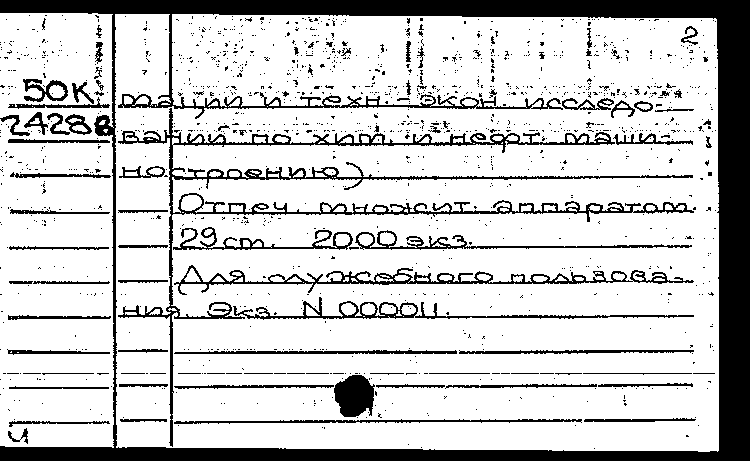 2
50К тации и техн.-экон. исследо-
24288 ваний по хим. и нефт. маши-
ностроению).
Отпеч. множит. аппаратом
29 см. 2000 экз.
Для служебного пользова-
ния. Экз. N 000011.
ч